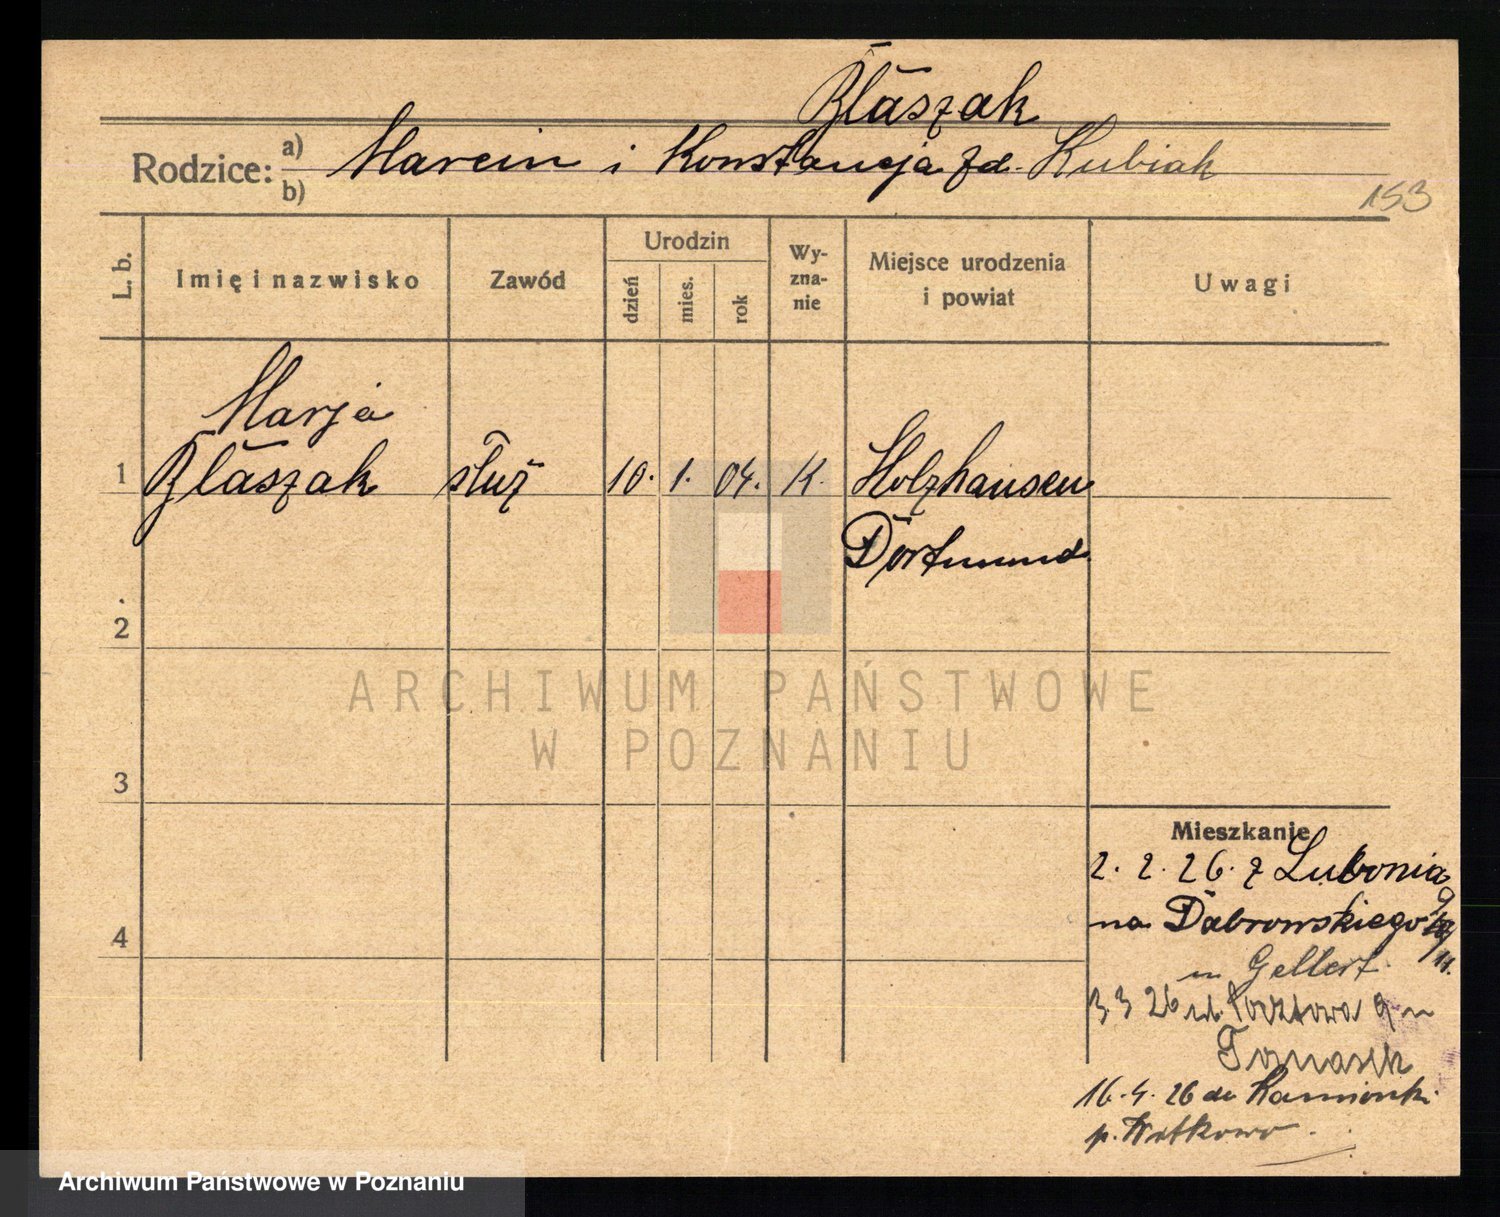 Błaszak
Rodzice: a) Marcin i Konstancja zd. Kubiak
b)
153
L. b.
Imię i nazwisko
Zawód
Urodzin
dzień
mies.
rok
Wy-
zna-
nie
Miejsce urodzenia
i powiat
Uwagi
Marja
1 Błaszak służ 10. 1. 04. K. Holzhausen
Dortmund
2
ARCHIWUM PAŃSTWOWE
W POZNANIU
3
Mieszkanie
2. 2. 26. z Lubonia
4
na Dąbrowskiego
u Gellert
3 3 26 ul. Pocztowa 9 u
Tomasik
16. 4. 26 do Kamionki
p. Witkowo
Archiwum Państwowe w Poznaniu